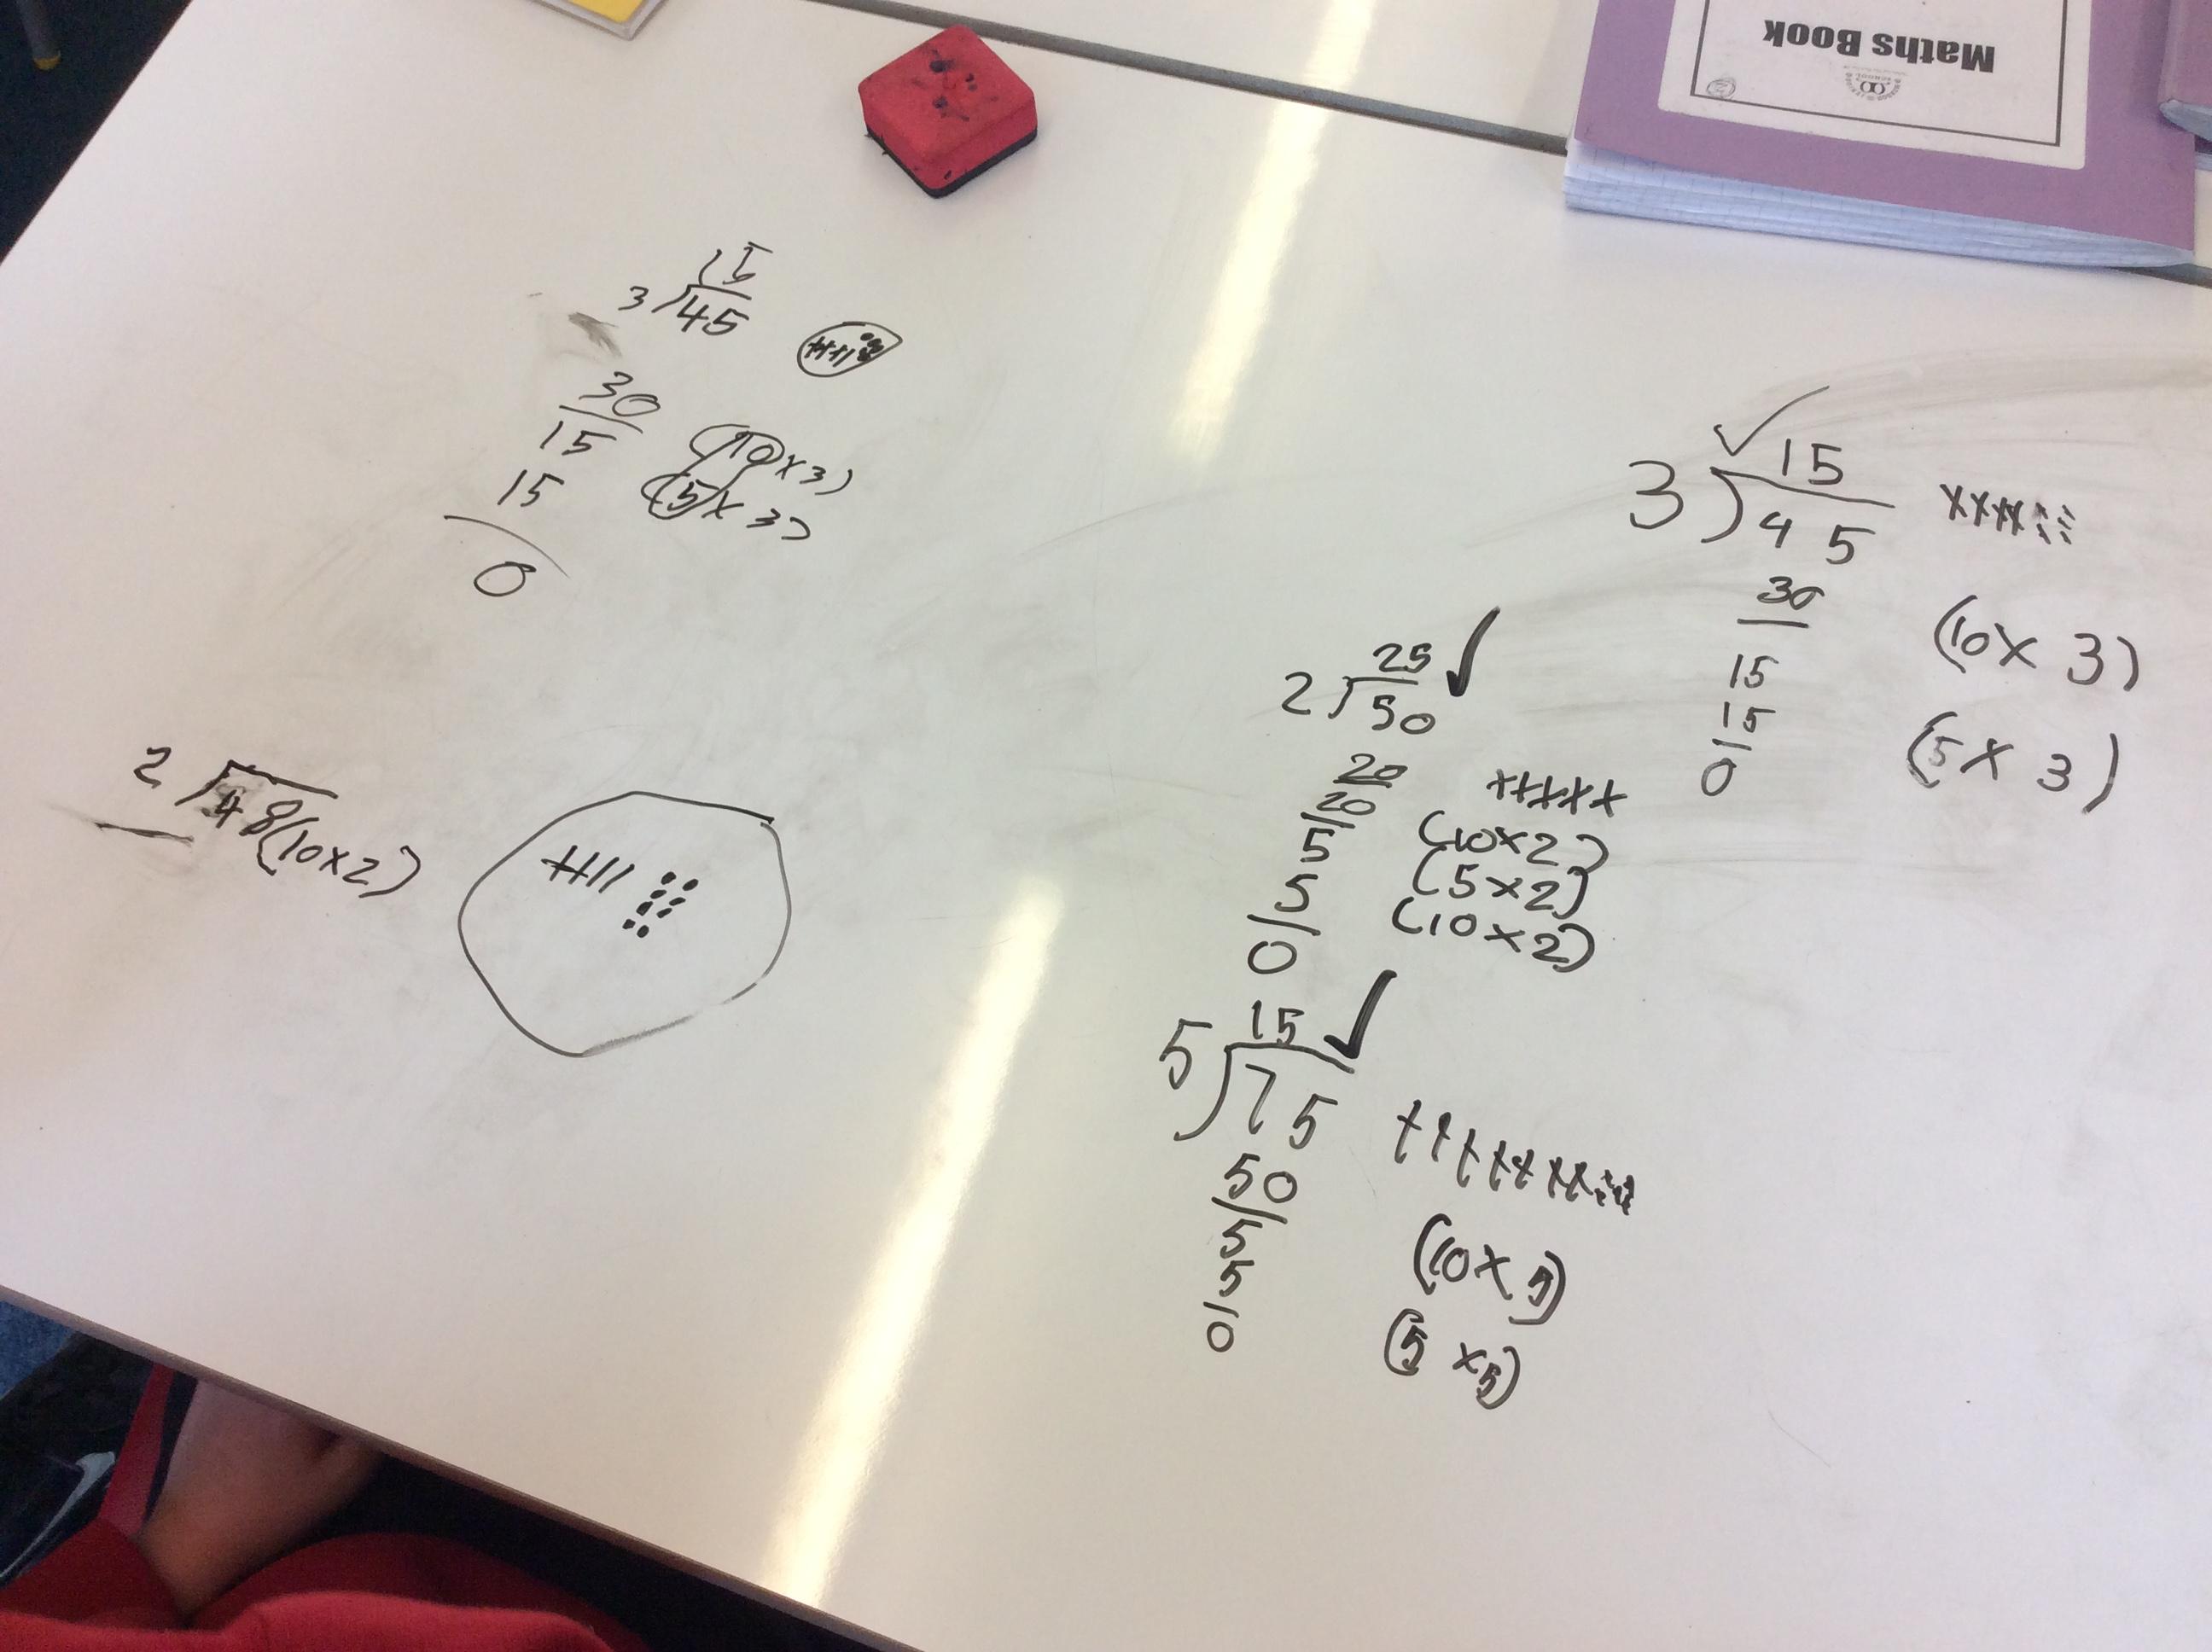 Maths Book
15
3 45
30
15 (10 x 3)
15 (5 x 3)
0
2 48 (10 x 2)
15
3 45
30
(10 x 3)
15
15
(5 x 3)
0
25
2 50
20
20 (10 x 2)
5 (5 x 2)
5 (10 x 2)
0
15
5 75
50
5 (10 x 5)
5
0 (5 x 5)